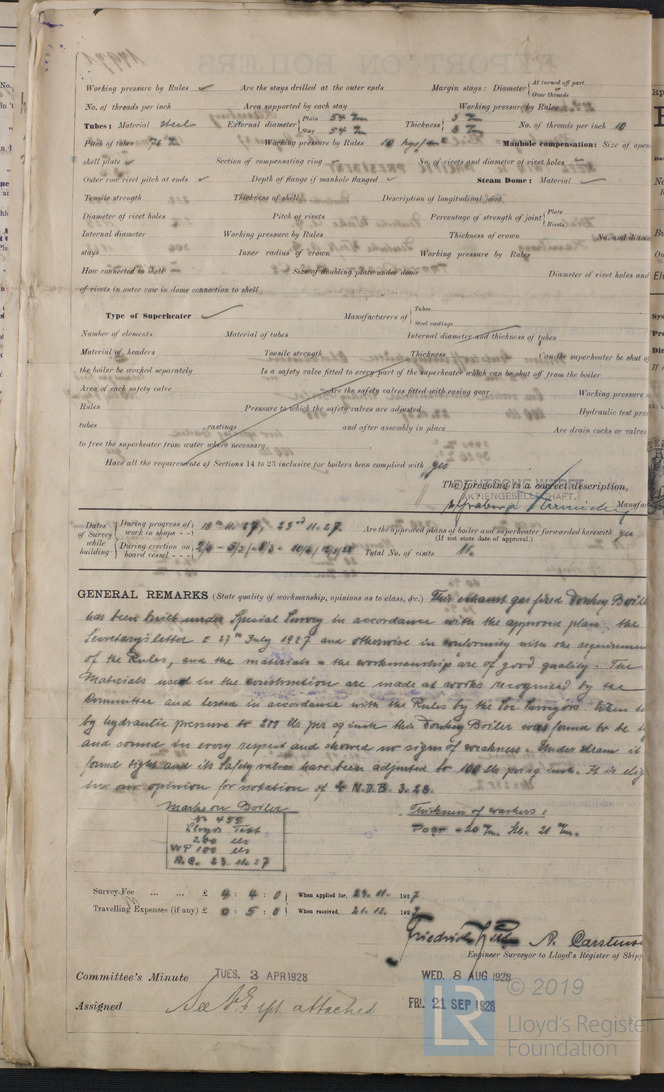 Working pressure by Rules ✓ Are the stays drilled at the outer ends Margin stays: Diameter { At turned off part, or Over threads
No. of threads per inch Area supported by each stay Working pressure by Rules
Tubes: Material steel External diameter { Plain 54 m/m Stay 54 m/m Thickness { 3 m/m 8 m/m No. of threads per inch 10
Pitch of tubes 76 m/m Working pressure by Rules 10 Manhole compensation: Size of open
shell plate ✓ Section of compensating ring ✓ No. of rivets and diameter of rivet holes ✓
Outer row rivet pitch at ends ✓ Depth of flange if manhole flanged ✓ Steam Dome: Material ✓
Tensile strength Thickness of shell Description of longitudinal joint
Diameter of rivet holes Pitch of rivets Percentage of strength of joint { Plate Rivets
Internal diameter Working pressure by Rules Thickness of crown No. and diame
stays Inner radius of crown Working pressure by Rules
How connected to shell Size of doubling plate under dome Diameter of rivet holes and
of rivets in outer row in dome connection to shell
Type of Superheater ✓ Manufacturers of { Tubes Steel castings
Number of elements Material of tubes Internal diameter and thickness of tubes
Material of headers Tensile strength Thickness Can the superheater be shut of
the boiler be worked separately Is a safety valve fitted to every part of the superheater which can be shut off from the boiler
Area of each safety valve Are the safety valves fitted with easing gear Working pressure
Rules Pressure to which the safety valves are adjusted Hydraulic test pres
tubes castings and after assembly in place Are drain cocks or valves
to free the superheater from water where necessary
Have all the requirements of Sections 14 to 23 inclusive for boilers been complied with yes
The foregoing is a correct description,
DEUTSCHE WERFT
AKTIENGESELLSCHAFT. Manufac
Dates of Survey while building { During progress of work in shops - - 18th 11.27, 23rd 11.27 Are the approved plans of boiler and superheater forwarded herewith yes
(If not state date of approval.)
During erection on board vessel - - - Total No. of visits 11.
GENERAL REMARKS (State quality of workmanship, opinions as to class, &c.) This exhaust gas fired Donkey Boile
has been built under Special Survey in accordance with the approved plan the
Secretary's letter E 27th July 1927 and otherwise in conformity with the requiremen
of the Rules, and the materials & the workmanship are of good quality. The
Materials used in the construction are made at works recognized by the
Committee and tested in accordance with the Rules by the Soc Surveyors. When te
by hydraulic pressure to 200 lbs per sq inch this Donkey Boiler was found to be t
and sound in every respect and showed no signs of weakness. Under steam it
found tight and its Safety valves have been adjusted to 100 lbs per sq inch. It is elig
in our opinion for notation of ✠ N.D.B. 3.28.
Marks on Boiler
No 455
Lloyds Test
200 lbs
WP 100 lbs
A.C. 23.11.27
Thickness of washers:
Port = 20 m/m. Stb. 21 m/m.
Survey Fee ... ... £ 4 : 4 : 0 When applied for, 29.11. 1927
Travelling Expenses (if any) £ 0 : 5 : 0 When received, 21.12. 192
Friedrich A. Carstens
Engineer Surveyor to Lloyd's Register of Shipp
Committee's Minute TUES. 3 APR 1928 WED. 8 AUG 1928
Assigned See rpt. attached FRI. 21 SEP 1928
© 2019
LR Lloyd's Register
Foundation